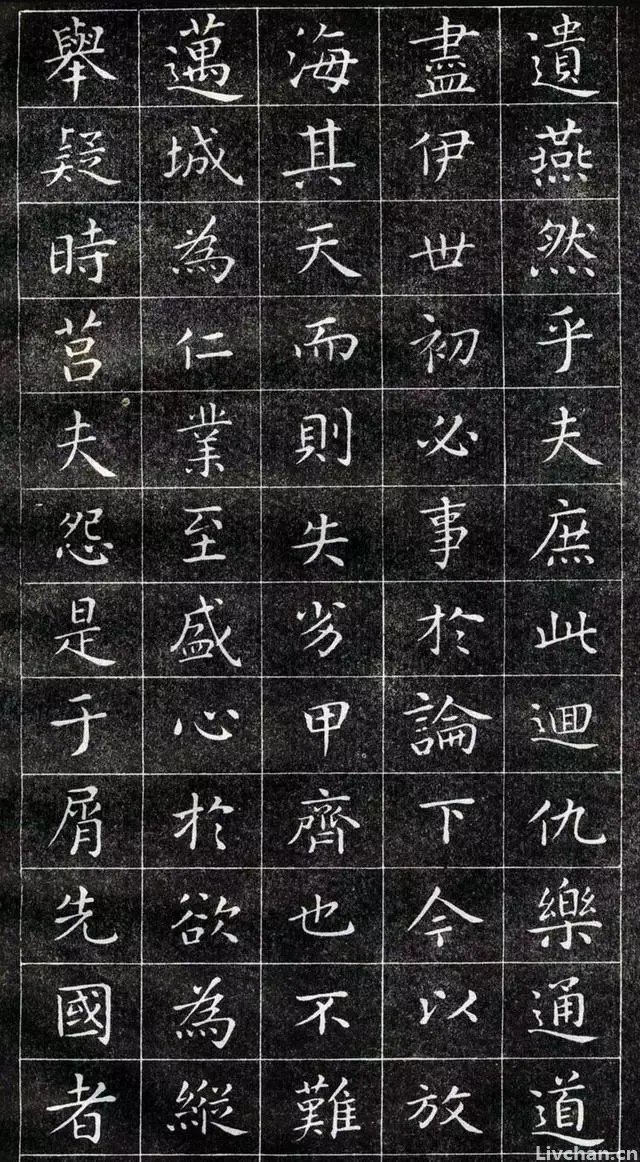 遺燕然乎夫庶此迴仇樂通道
盡伊世初必事於論下今以放
海其天而則失劣甲齊也不難
邁城為仁業至盛心於欲為縱
舉疑時莒夫怨是于屑先國者
Livchan.cn